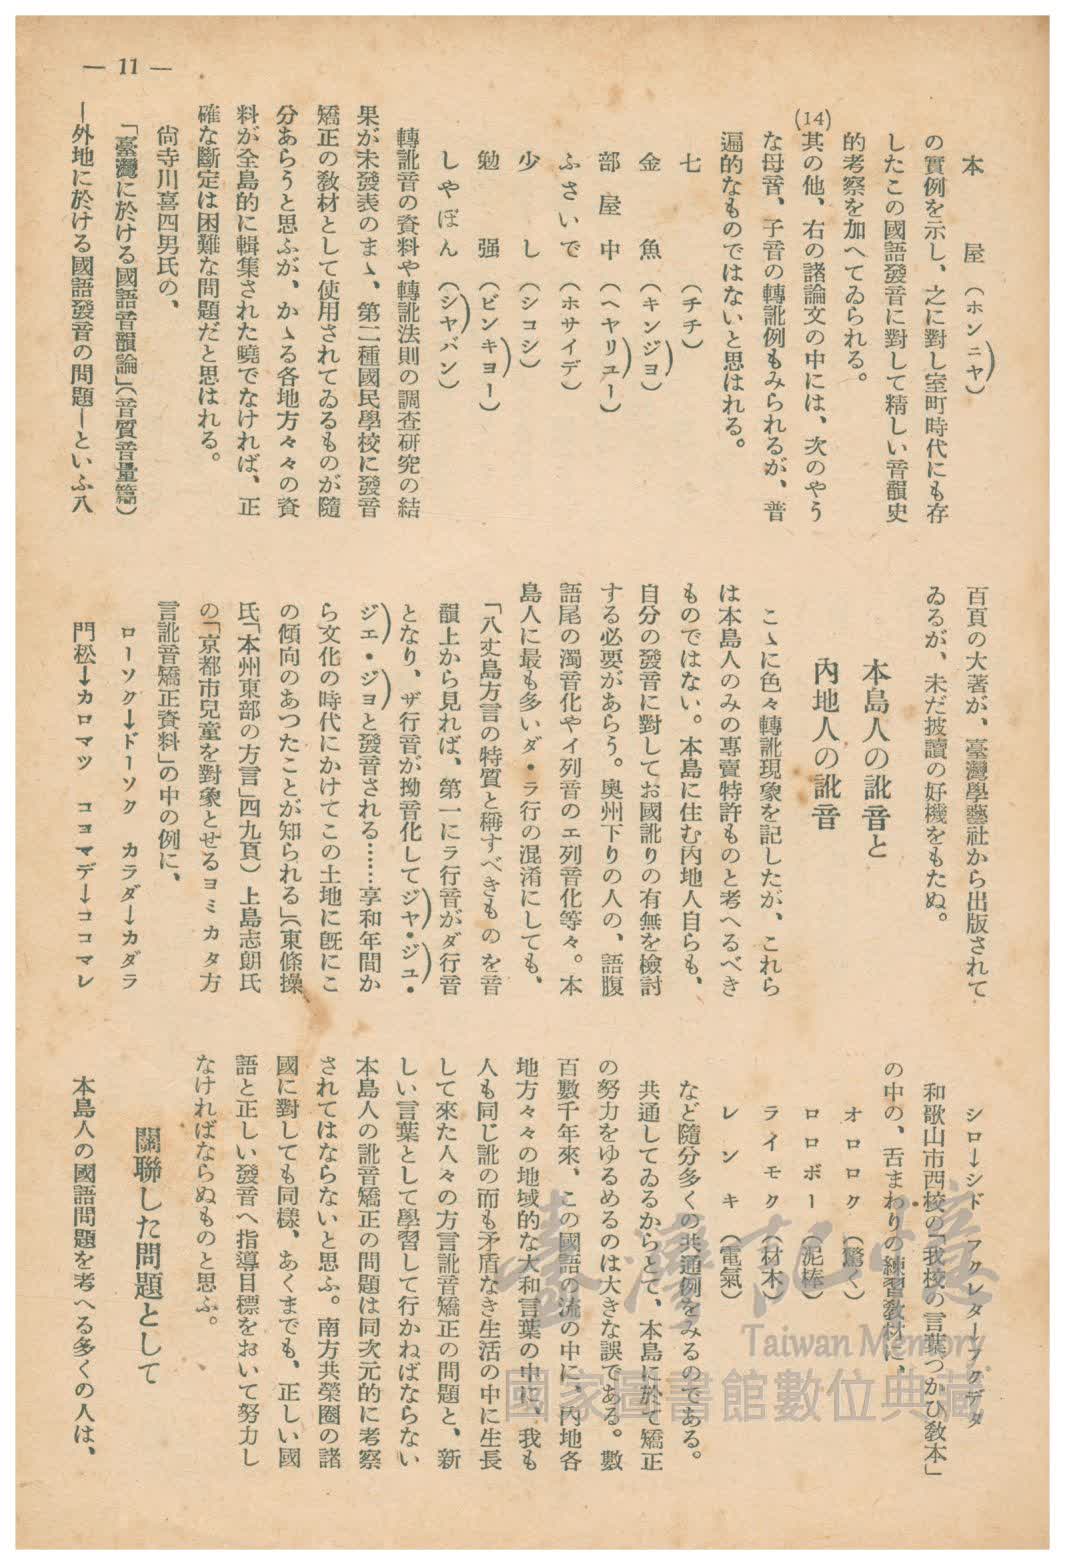 — 11 —
本屋（ホンニヤ）
の實例を示し、之に對し室町時代にも存
したこの國語發音に對して精しい音韻史
的考察を加へてゐられる。
(14)其の他、右の諸論文の中には、次のやう
な母音、子音の轉訛例もみられるが、普
遍的なものではないと思はれる。
七（チチ）
金魚（キンジヨ）
部屋中（ヘヤリユー）
ふさいで（ホサイデ）
少し（シコシ）
勉强（ビンキヨー）
しやぼん（シヤバン）
轉訛音の資料や轉訛法則の調査硏究の結
果が未發表のまゝ、第二種國民學校に發音
矯正の敎材として使用されてゐるものが隨
分あらうと思ふが、かゝる各地方々々の資
料が全島的に輯集された曉でなければ、正
確な斷定は困難な問題だと思はれる。
尙寺川喜四男氏の、
「臺灣に於ける國語音韻論」（音質音量篇）
―外地に於ける國語發音の問題―といふ八
百頁の大著が、臺灣學藝社から出版されて
ゐるが、未だ披讀の好機をもたぬ。
本島人の訛音と
內地人の訛音
こゝに色々轉訛現象を記したが、これら
は本島人のみの專賣特許ものと考へるべき
ものではない。本島に住む內地人自らも、
自分の發音に對してお國訛りの有無を檢討
する必要があらう。奧州下りの人の、語腹
語尾の濁音化やイ列音のエ列音化等々。本
島人に最も多いダ・ラ行の混淆にしても、
「八丈島方言の特質と稱すべきものを音
韻上から見れば、第一にラ行音がダ行音
となり、ザ行音が拗音化してジヤ・ジユ・
ジエ・ジヨと發音される……享和年間か
ら文化の時代にかけてこの土地に旣にこ
の傾向のあつたことが知られる」（東條操
氏「本州東部の方言」四九頁）上島志朗氏
の「京都市兒童を對象とせるヨミカタ方
言訛音矯正資料」の中の例に、
ローソク→ドーソク　カラダ→カダラ
門松→カロマツ　コヨマデ→ココマレ
シロ→シド　フクレター→フクデタ
和歌山市西校の「我校の言葉つかひ敎本」
の中の、舌まわりの練習敎材に、
オロロク（驚く）
ロロボー（泥棒）
ライモク（材木）
レンキ（電氣）
など隨分多くの共通例をみるのである。
共通してゐるからとて、本島に於て矯正
の努力をゆるめるのは大きな誤である。數
百數千年來、この國語の流の中に、內地各
地方々々の地域的な大和言葉の中に、我も
人も同じ訛の而も矛盾なき生活の中に生長
して來た人々の方言訛音矯正の問題と、新
しい言葉として學習して行かねばならない
本島人の訛音矯正の問題は同次元的に考察
されてはならないと思ふ。南方共榮圈の諸
國に對しても同樣、あくまでも、正しい國
語と正しい發音へ指導目標をおいて努力し
なければならぬものと思ふ。
關聯した問題として
本島人の國語問題を考へる多くの人は、
臺灣記憶
Taiwan Memory
國家圖書館數位典藏